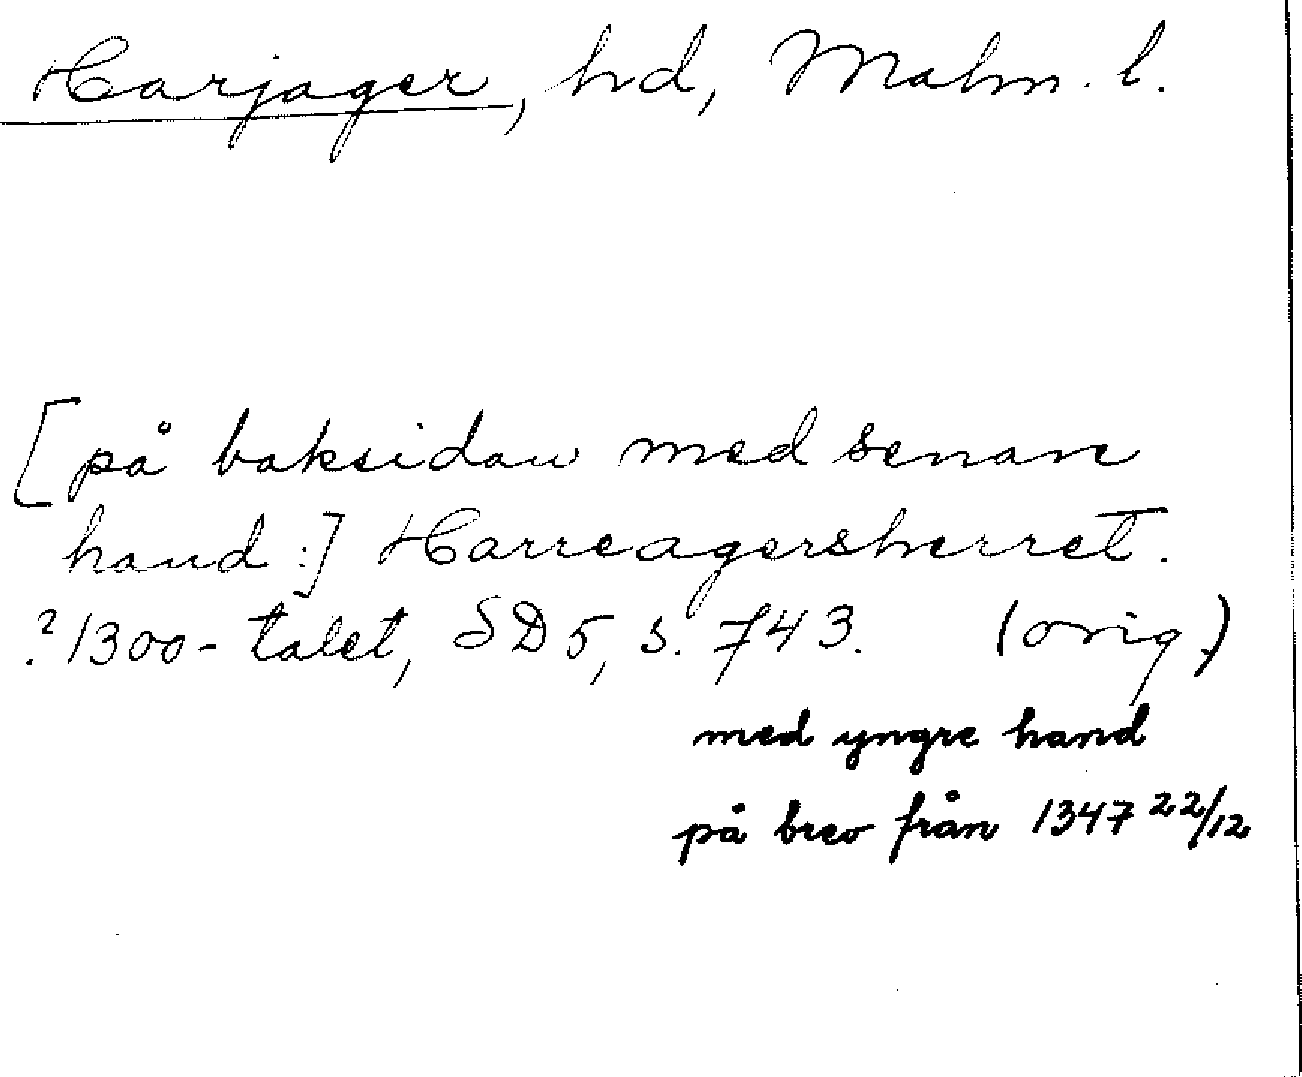 Harjager, hd, Malm. l.
[på baksidan med senare
hand:] Harreagersherret.
?1300-talet, SD 5, s. 743. (orig.)
med yngre hand
på brev från 1347 22/12